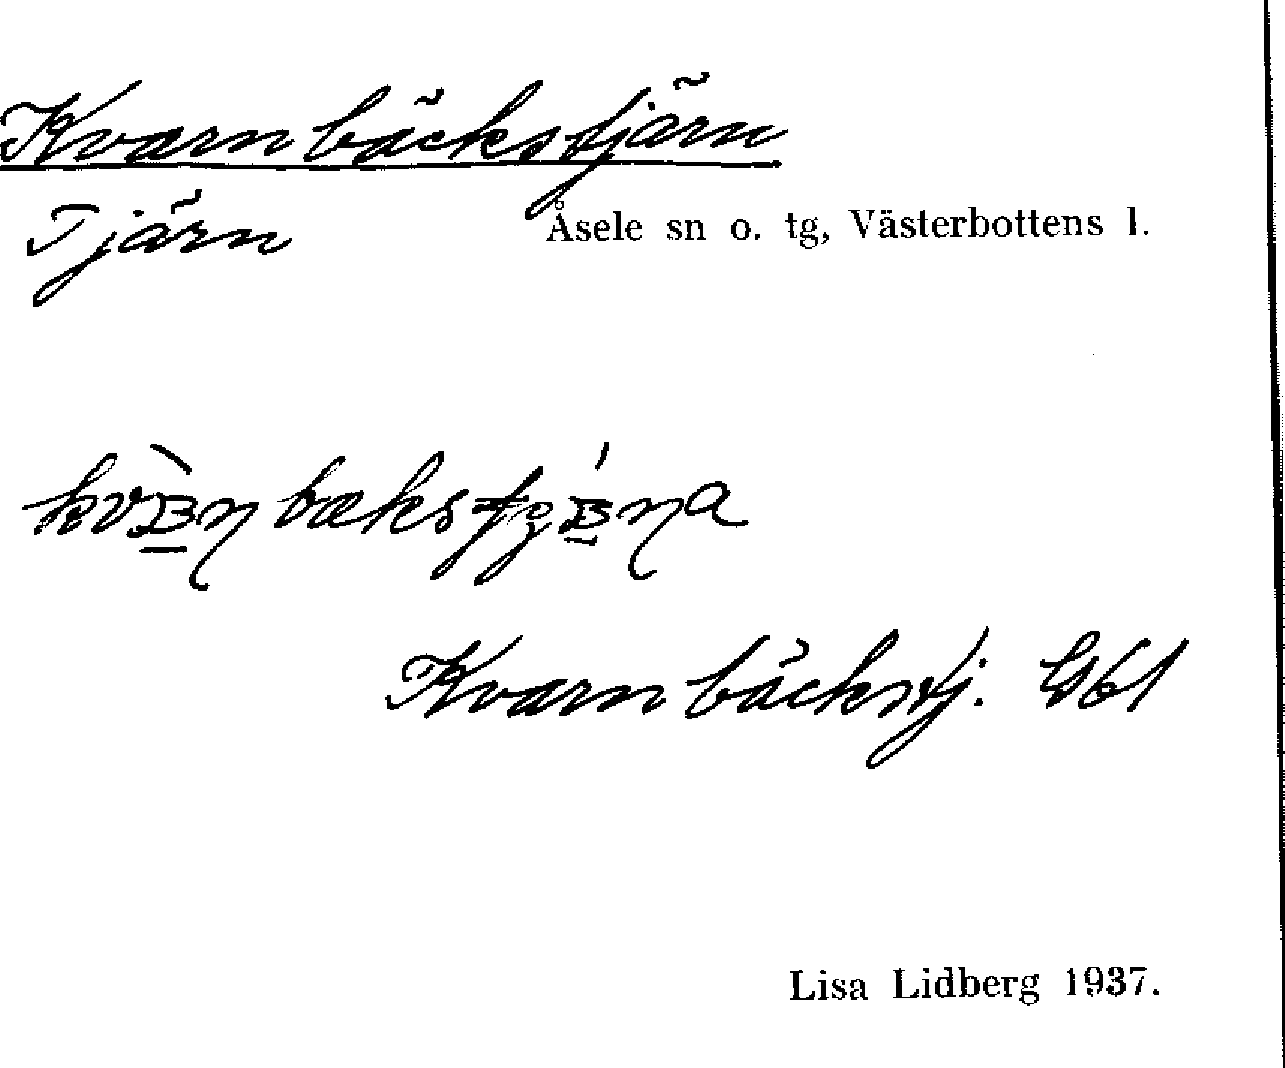 Kvarnbäckstjärn
Tjärn Åsele sn o. tg, Västerbottens l.
Kvarnbäckstj.
Lisa Lidberg 1937.